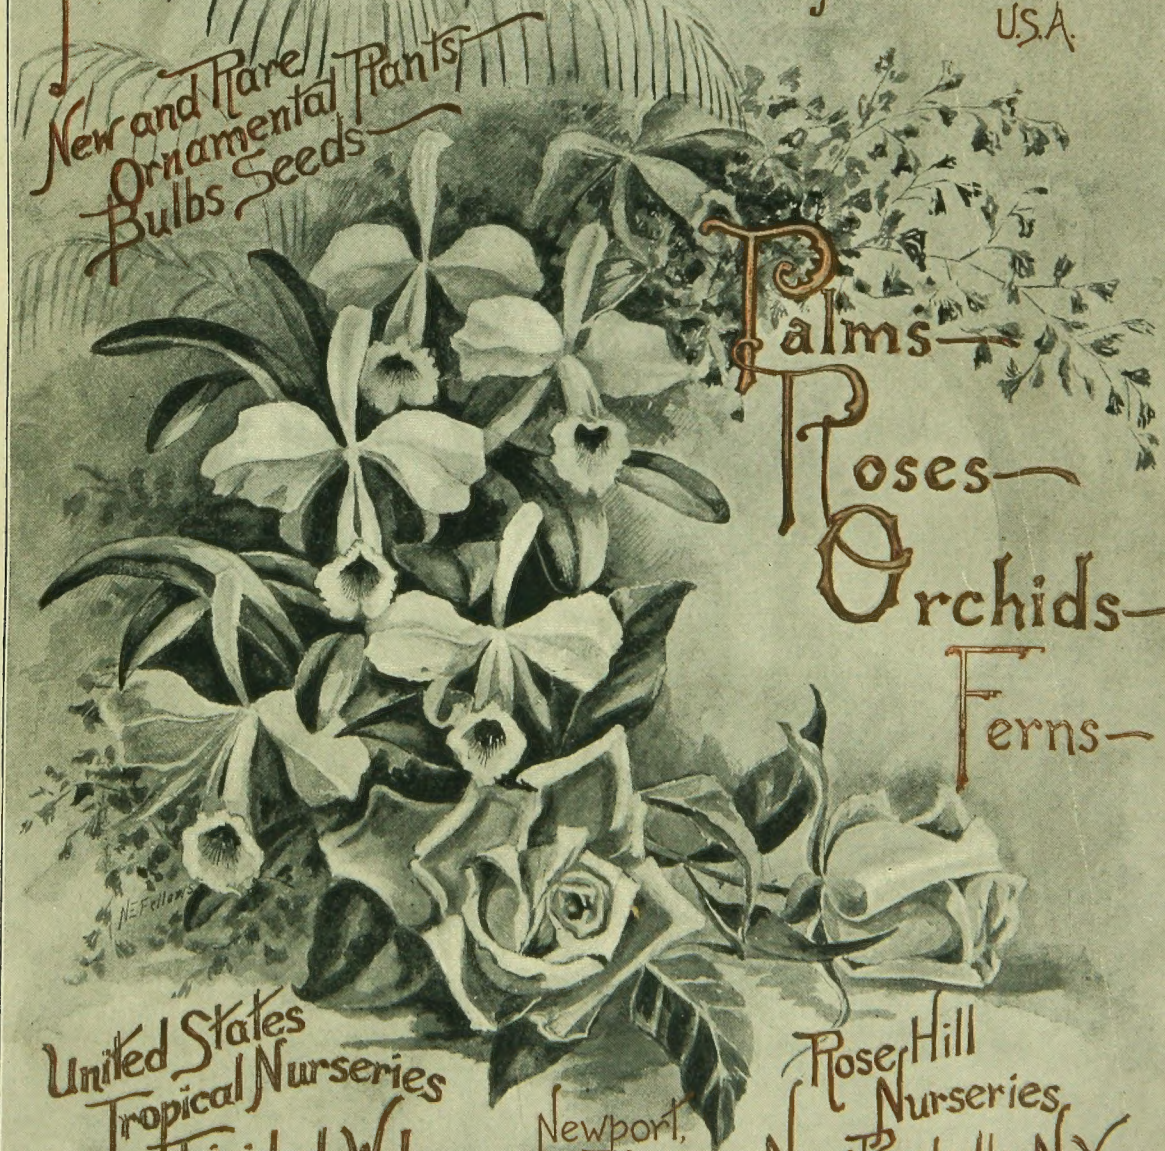 U.S.A.
New and Rare
Ornamental Plants
Bulbs Seeds
Palms
Roses
Orchids
Ferns
N E Fellows
United States
Tropical Nurseries
Rose Hill
Nurseries,
Newport,